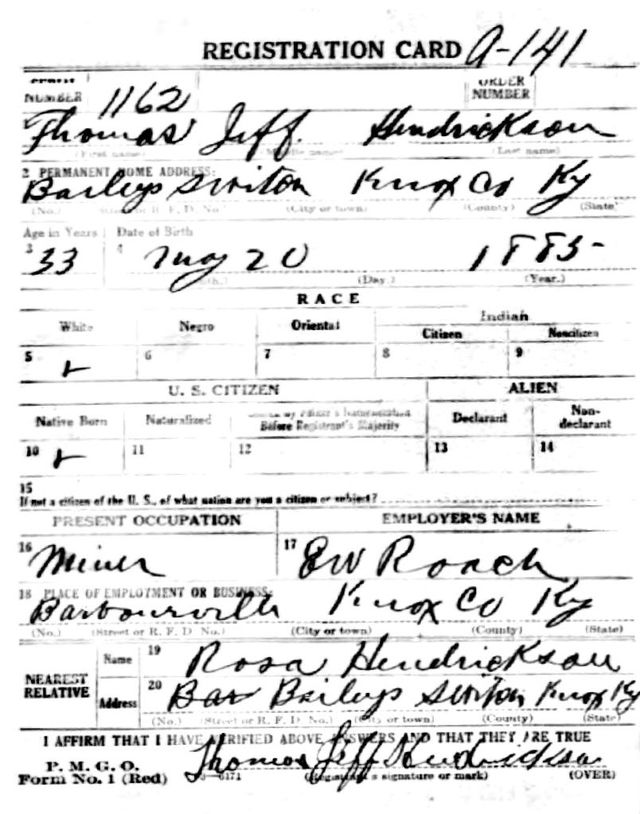 REGISTRATION CARD A-141
NUMBER 1162 ORDER NUMBER
Thomas Jeff Hendrickson
(First name) (Middle name) (Last name)
2 PERMANENT HOME ADDRESS:
Baileys Switon Knox Co Ky
(No.) (Street or R. F. D. No.) (City or town) (County) (State)
Age in Years Date of Birth
3 33 4 May 20 1885
(Day.) (Year.)
RACE
White Negro Oriental Indian
Citizen Noncitizen
5 6 7 8 9
U. S. CITIZEN ALIEN
Native Born Naturalized Before Registrant's Majority Declarant Non-declarant
10 11 12 13 14
15
If not a citizen of the U. S., of what nation are you a citizen or subject?
PRESENT OCCUPATION EMPLOYER'S NAME
16 Miner 17 EW Roach
18 PLACE OF EMPLOYMENT OR BUSINESS:
Barbourville Knox Co Ky
(No.) (Street or R. F. D. No.) (City or town) (County) (State)
NEAREST RELATIVE
Name 19 Rosa Hendrickson
Address 20 Bar Baileys Switon Knox Ky
(No.) (Street or R. F. D. No.) (City or town) (County) (State)
I AFFIRM THAT I HAVE VERIFIED ABOVE ANSWERS AND THAT THEY ARE TRUE
P. M. G. O.
Form No. 1 (Red) 3—6171 Thomas Jeff Hendrickson
(Registrant's signature or mark) (OVER)